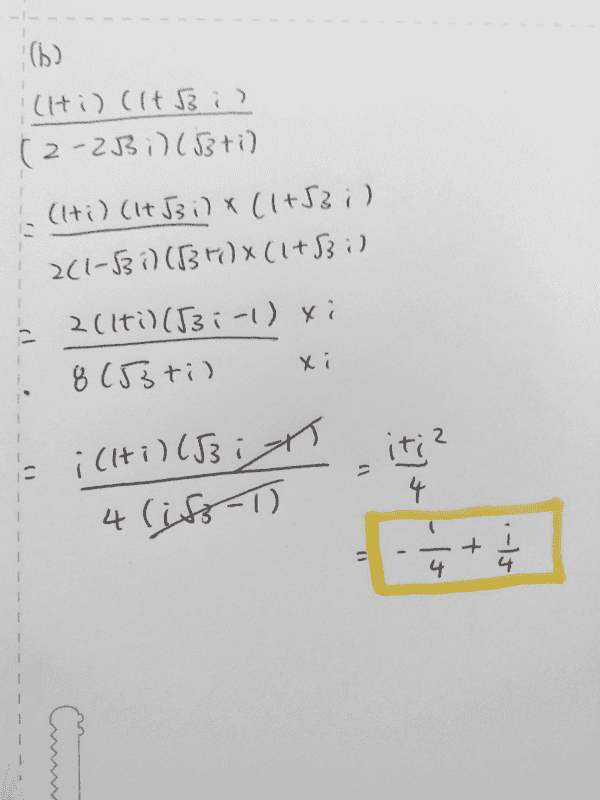 (b)
(1+i)(1+√3 i)
(2-2√3 i)(√3+i)
= (1+i)(1+√3 i) × (1+√3 i)
2(1-√3 i)(√3+i)×(1+√3 i)
= 2(1+i)(√3 i -1) × i
8(√3+i) × i
= i(1+i)(√3 i -1) = i+i²
4(i√3 -1) 4
= -1/4 + i/4